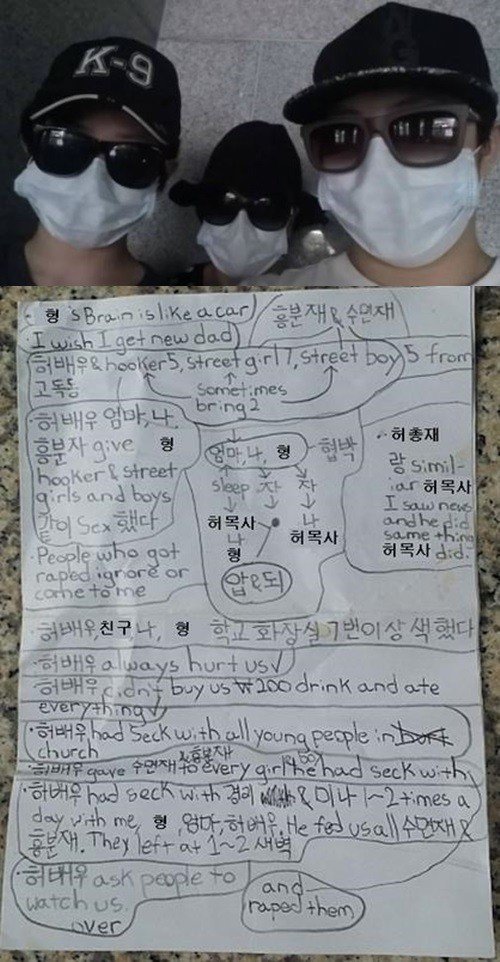 K-9
형's Brain is like a car
I wish I get new dad
흥분재 & 수면재
허배우 & hooker 5, street girl 7, street boy 5 from
고독동
sometimes
bring 2
·허배우 엄마, 나.
흥분자 give 형
hooker & street
girls and boys
같이 sex 했다
·People who got
raped ignore or
come to me
엄마, 나, 형 - 협박
sleep 자 자
허목사 나
나 허목사
형
압&되
·허총재
랑 simil-
iar 허목사
I saw news
and he did
same thing
허목사 did.
·허배우, 친구 나, 형 학교 화장실 7번이상 색했다
·허배우 always hurt us √
·허배우 didn't buy us ₩200 drink and ate
everything √
·허배우 had seck with all young people in
church
& 흥분재
·허배우 gave 수면재 to every girl he had seck with
·허배우 had seck with & 미나 1~2 times a
day with me, 형, 엄마, 허배우. He fed us all 수면재 &
흥분재. They left at 1~2 새벽
·허배우 ask people to
watch us.
over
and
raped them